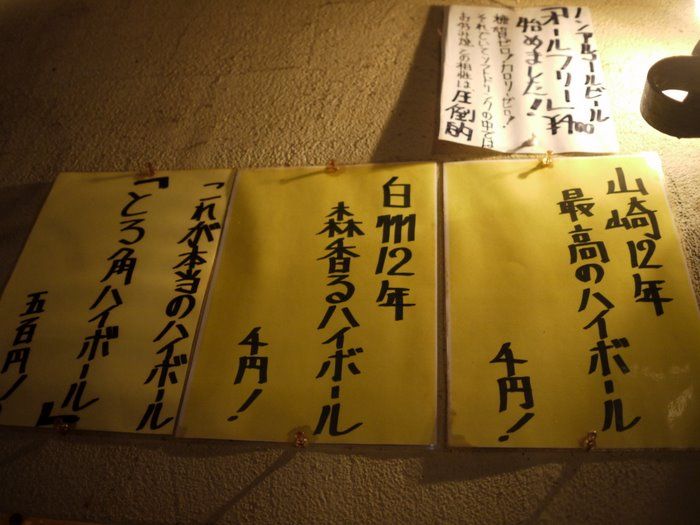 ノンアルコールビール
「オールフリー」
始めました!
糖質ゼロ!カロリーゼロ!
それでいてソフトドリンクの中では
お好み焼との相性は圧倒的
山崎12年
最高のハイボール
千円!
白州12年
森香るハイボール
千円!
これが本当のハイボール
「とろ角ハイボール」
五百円!